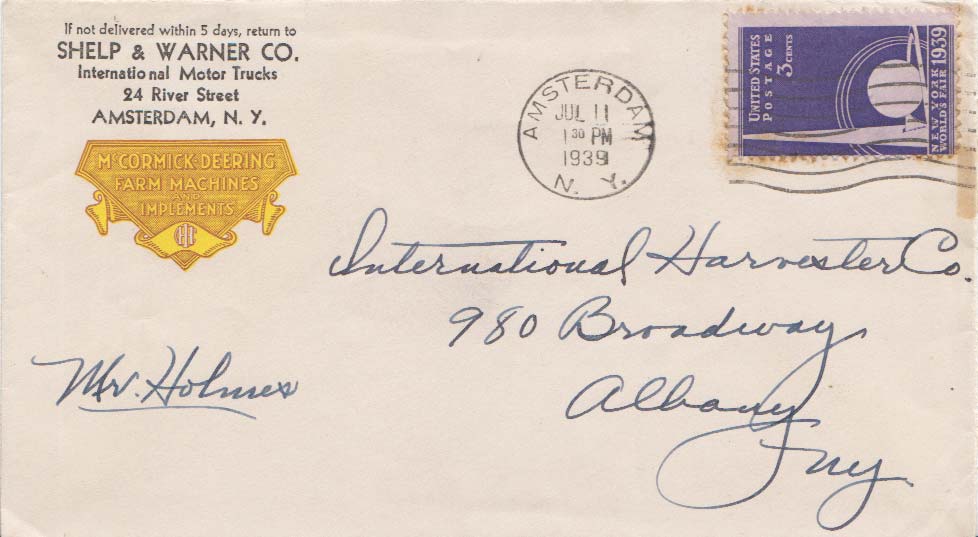 If not delivered within 5 days, return to
SHELP & WARNER CO.
International Motor Trucks
24 River Street
AMSTERDAM, N. Y.
McCORMICK-DEERING
FARM MACHINES
AND
IMPLEMENTS
IHC
AMSTERDAM
JUL 11
1 30 PM
1939
N. Y.
UNITED STATES
POSTAGE
3 CENTS
NEW YORK 1939
WORLD'S FAIR
International Harvester Co.
980 Broadway
Albany
NY
Mr. Holmes